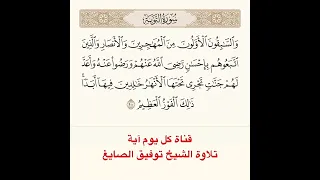 سُورَةُ التَّوْبَةِ
وَالسَّٰبِقُونَ الْأَوَّلُونَ مِنَ الْمُهَٰجِرِينَ وَالْأَنصَارِ وَالَّذِينَ
اتَّبَعُوهُم بِإِحْسَٰنٍ رَّضِيَ اللَّهُ عَنْهُمْ وَرَضُوا عَنْهُ وَأَعَدَّ
لَهُمْ جَنَّٰتٍ تَجْرِي تَحْتَهَا الْأَنْهَٰرُ خَٰلِدِينَ فِيهَا أَبَدًا
ذَٰلِكَ الْفَوْزُ الْعَظِيمُ ۝١٠٠
قناة كل يوم آية
تلاوة الشيخ توفيق الصايغ